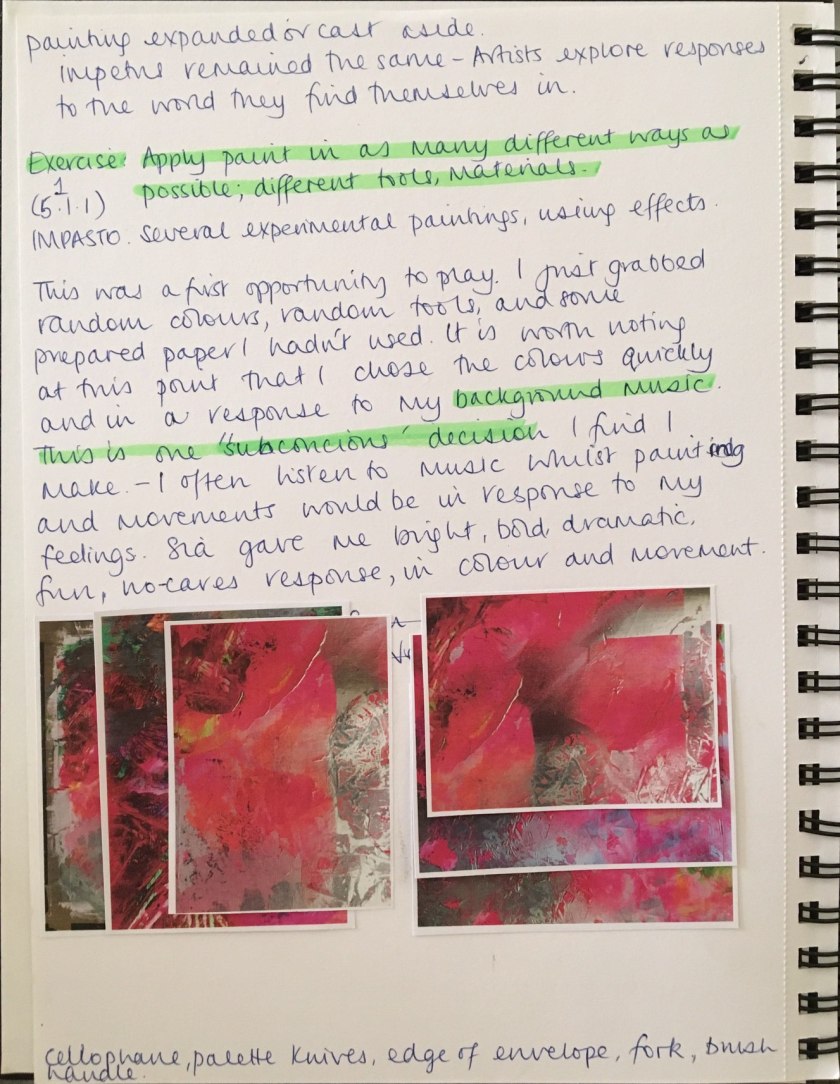 painting expanded or cast aside.
Impetus remained the same – Artists explore responses
to the world they find themselves in.
Exercise: Apply paint in as many different ways as
possible; different tools, materials.
(5.1.1)
1
IMPASTO. Several experimental paintings, using effects.
This was a first opportunity to play. I just grabbed
random colours, random tools, and some
prepared paper I hadn't used. It is worth noting
at this point that I chose the colours quickly
and in a response to my background music.
This is one "subconcious" decision I find I
make. – I often listen to music whilst painting
and movements would be in response to my
feelings. Sia gave me bright, bold, dramatic,
fun, no-cares response, in colour and movement.
cellophane, palette knives, edge of envelope, fork, brush
handle.